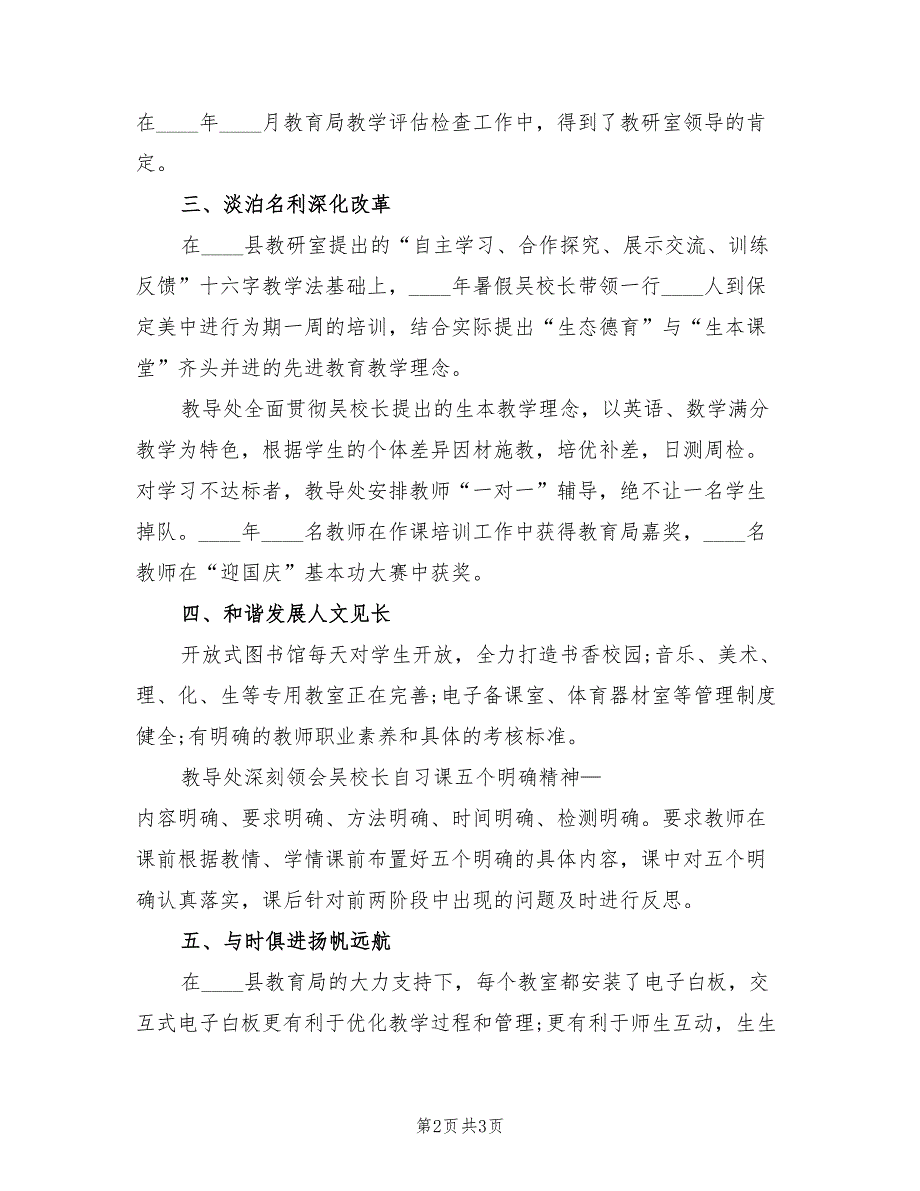 在____年____月教育局教学评估检查工作中，得到了教研室领导的肯
定。
三、淡泊名利深化改革
在____县教研室提出的“自主学习、合作探究、展示交流、训练
反馈”十六字教学法基础上，____年暑假吴校长带领一行____人到保
定美中进行为期一周的培训，结合实际提出“生态德育”与“生本课
堂”齐头并进的先进教育教学理念。
教导处全面贯彻吴校长提出的生本教学理念，以英语、数学满分
教学为特色，根据学生的个体差异因材施教，培优补差，日测周检。
对学习不达标者，教导处安排教师“一对一”辅导，绝不让一名学生
掉队。____年____名教师在作课培训工作中获得教育局嘉奖，____名
教师在“迎国庆”基本功大赛中获奖。
四、和谐发展人文见长
开放式图书馆每天对学生开放，全力打造书香校园;音乐、美术、
理、化、生等专用教室正在完善;电子备课室、体育器材室等管理制度
健全;有明确的教师职业素养和具体的考核标准。
教导处深刻领会吴校长自习课五个明确精神—
内容明确、要求明确、方法明确、时间明确、检测明确。要求教师在
课前根据教情、学情课前布置好五个明确的具体内容，课中对五个明
确认真落实，课后针对前两阶段中出现的问题及时进行反思。
五、与时俱进扬帆远航
在____县教育局的大力支持下，每个教室都安装了电子白板，交
互式电子白板更有利于优化教学过程和管理;更有利于师生互动，生生
第2页 共3页